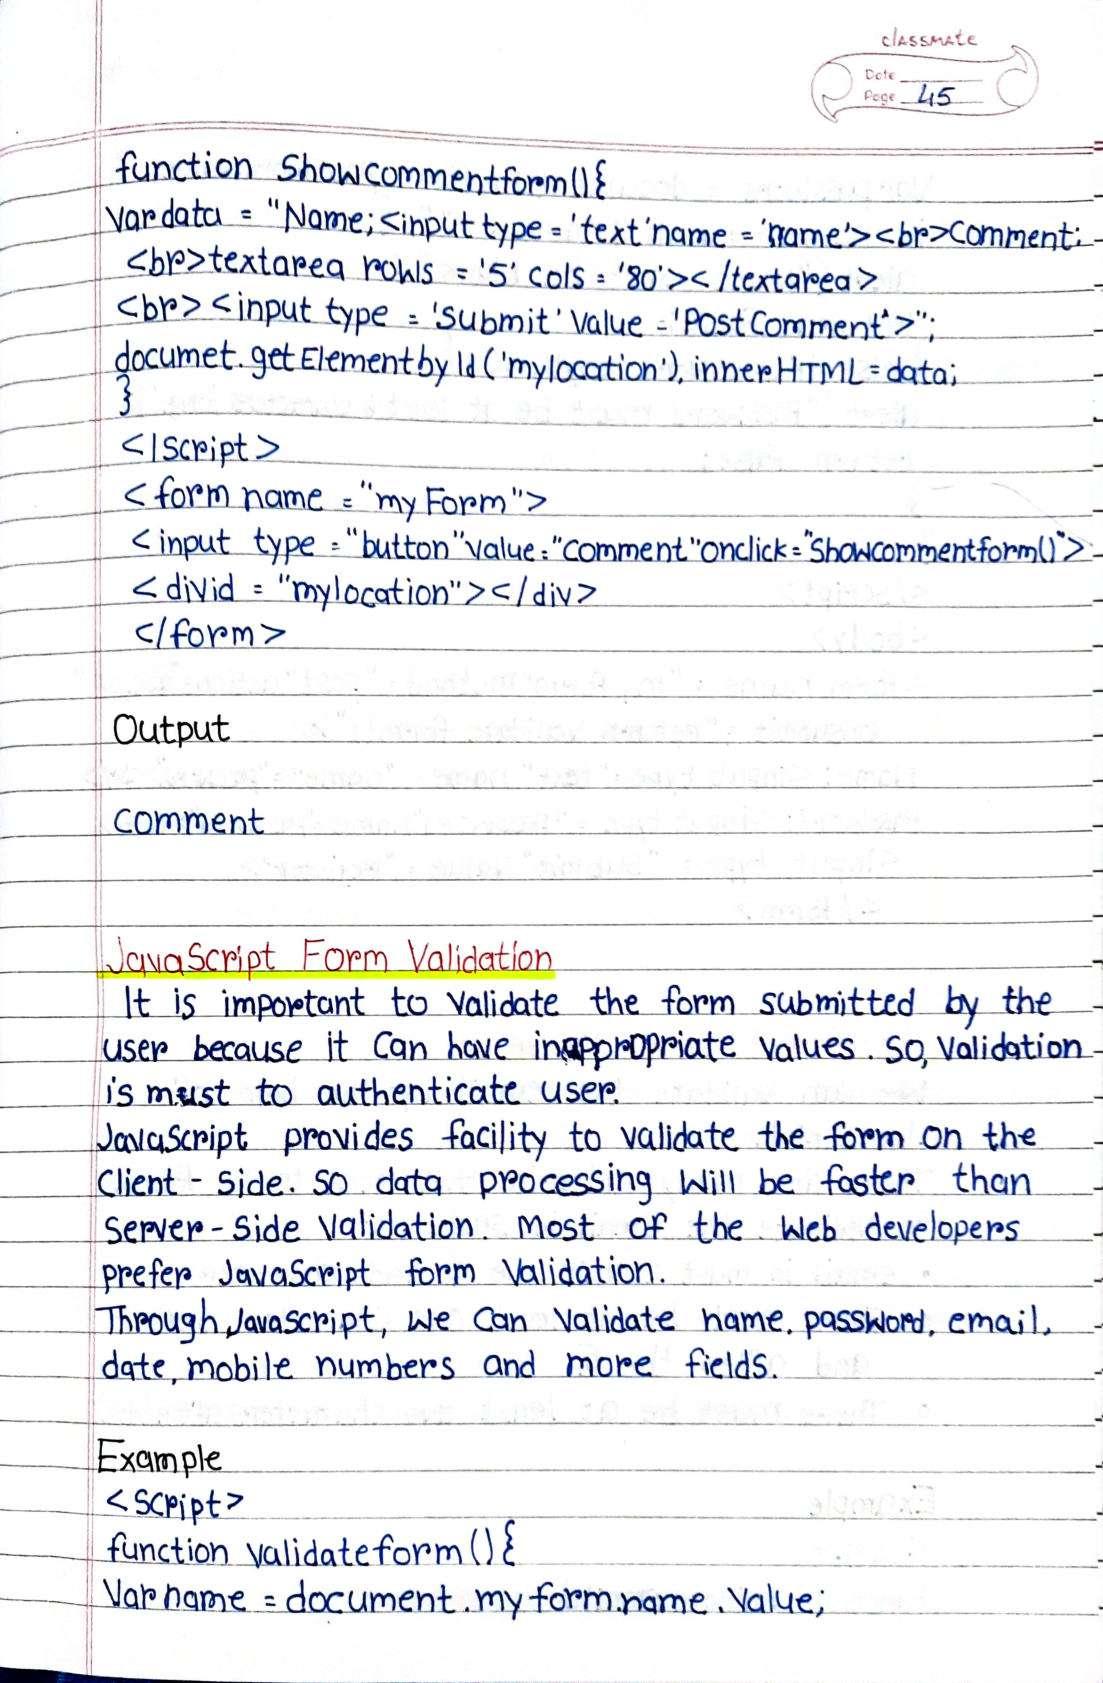 classmate
Date
Page 45
function Showcommentform(){
Var data = "Name;<input type = 'text' name = 'name'><br>Comment:
<br>textarea rows = '5' cols = '80'></textarea>
<br><input type = 'Submit' Value = 'Post Comment'>";
documet.getElementby Id ('mylocation'), innerHTML = data;
}
</Script>
<form name = "my Form">
<input type = "button" value = "Comment" onclick = "Showcommentform()">
<divid = "mylocation"></div>
</form>
Output
Comment
JavaScript Form Validation
It is important to validate the form submitted by the
user because it can have inappropriate values. So, Validation
is must to authenticate user.
JavaScript provides facility to validate the form on the
Client - Side. So data processing will be faster than
Server - Side Validation. Most of the Web developers
prefer JavaScript form Validation.
Through Javascript, we can validate name, password, email,
date, mobile numbers and more fields.
Example
<Script>
function validateform(){
Var name = document.my form.name.Value;